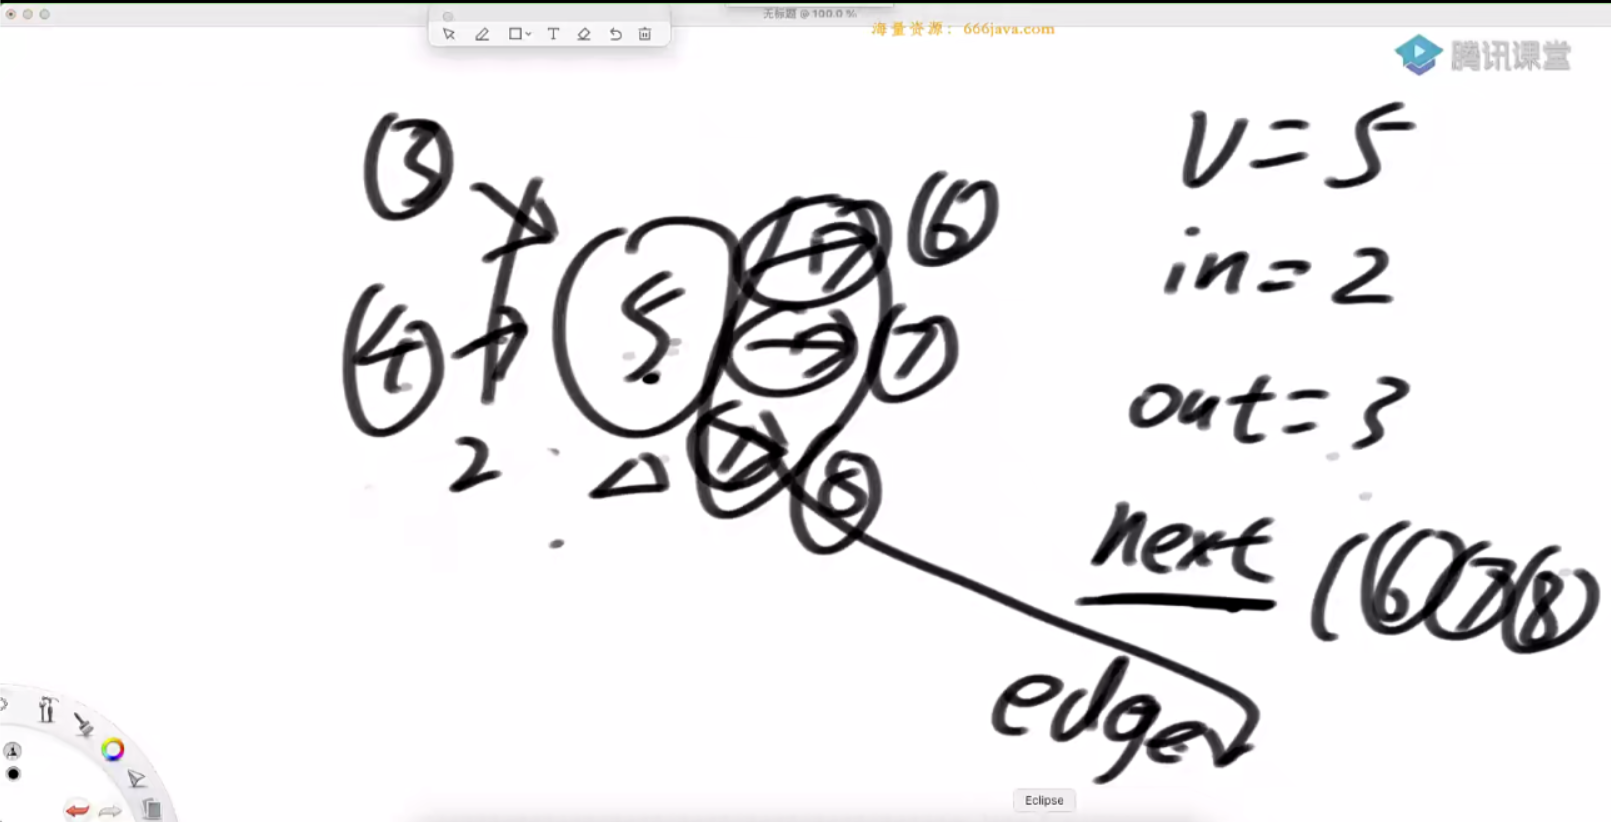 无标题 @ 100.0 %
海量资源：666java.com
T
腾讯课堂
3
V=5
6
5
in=2
4
7
out=3
2
8
next (6 7 8
edge
Eclipse